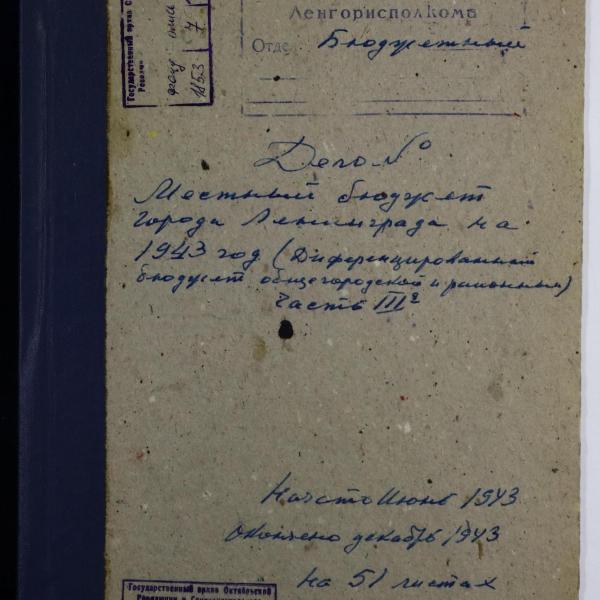 Государственный архив
фонд опись
1853 7
Ленгорисполкома
Отде Бюджетный
Дело №
Местный бюджет
города Ленинграда на
1943 год (Диференцированный
бюджет общегородской и районным)
Часть III
Начато Июнь 1943
Окончено декабрь 1943
на 51 листах
Государственный архив Октябрьской